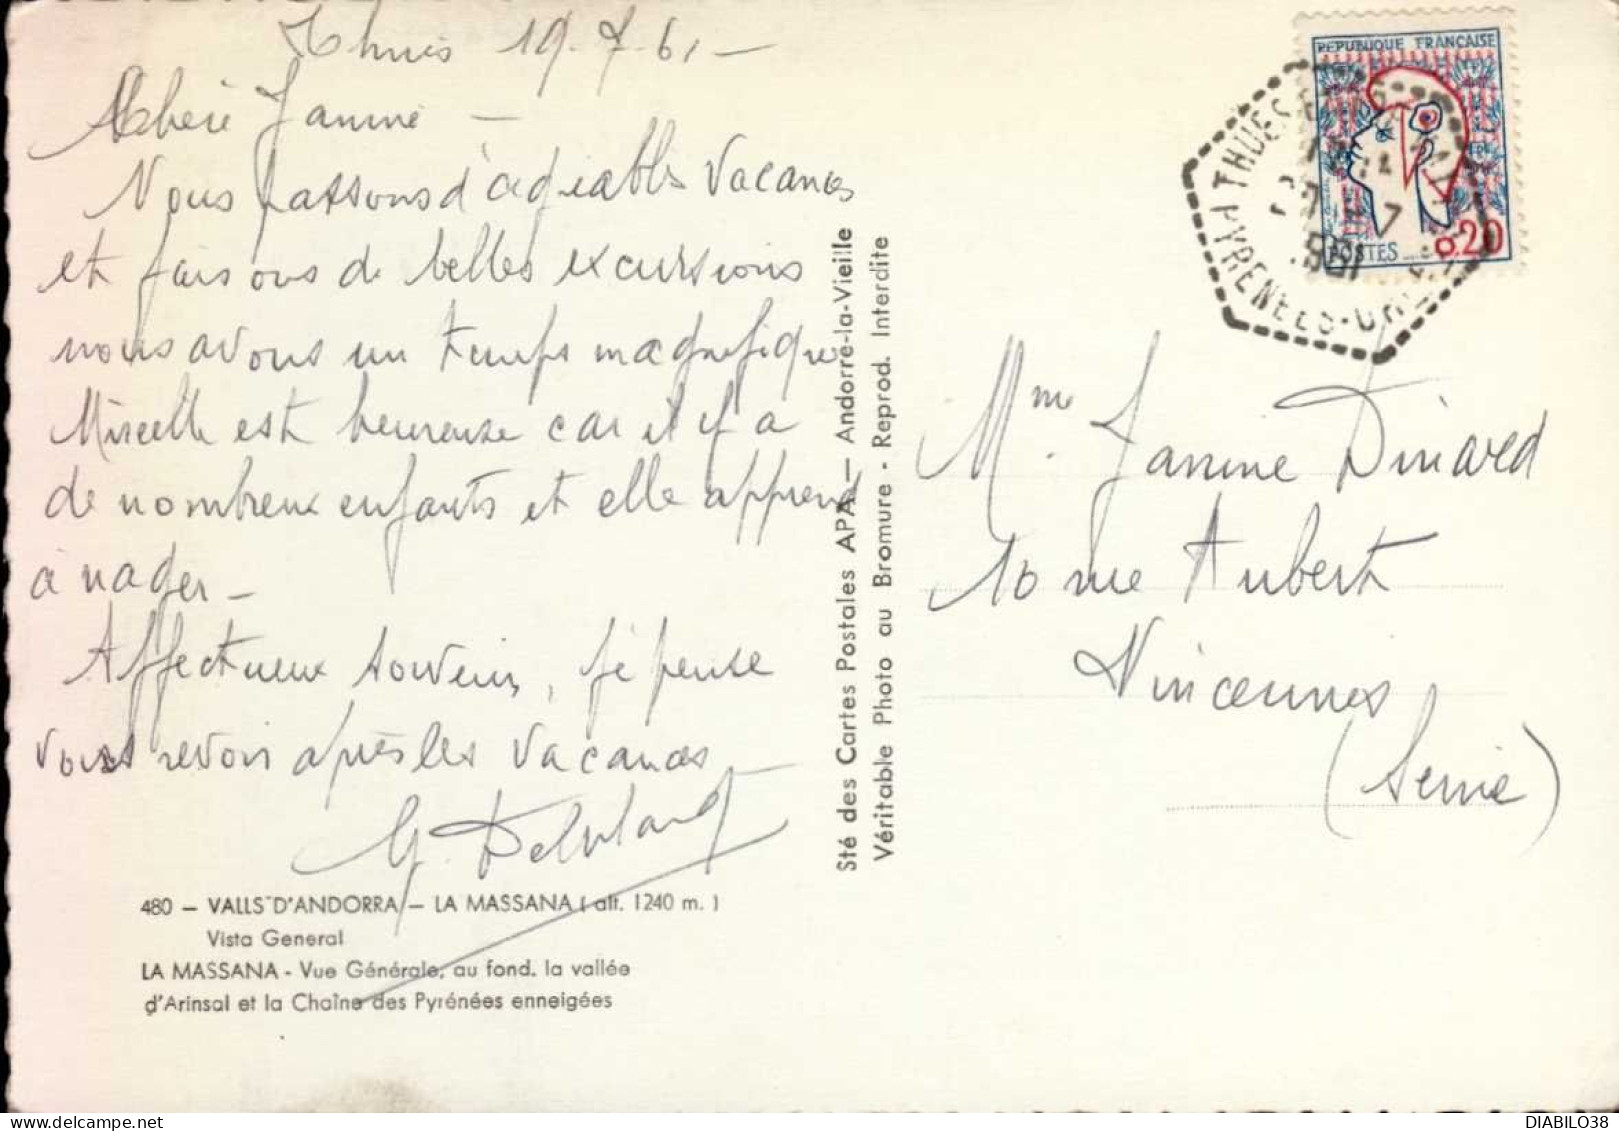 Thuès 19.7.61 -
Chère Janine -
Nous passons d'agréables vacances
et faisons de belles excursions
nous avons un temps magnifique
Mireille est heureuse car il y a
de nombreux enfants et elle apprend
à nager -
Affectueux souvenir, je pense
vous revoir après les vacances
480 — VALLS D'ANDORRA — LA MASSANA ( alt. 1240 m. )
Vista General
LA MASSANA - Vue Générale, au fond, la vallée
d'Arinsal et la Chaîne des Pyrénées enneigées
Sté des Cartes Postales APA — Andorre-la-Vieille
Véritable Photo au Bromure - Reprod. Interdite
REPUBLIQUE FRANÇAISE
POSTES 0.20
THUES
PYRENEES-OR
Mme Janine Dinard
10 rue Aubert
Vincennes
(Seine)
DIABILO38